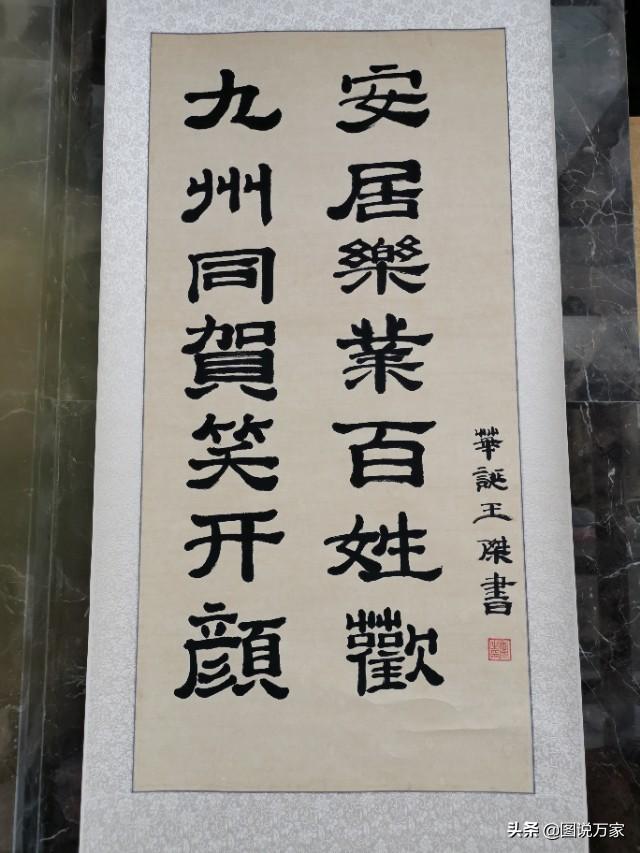 九州同賀笑开顔
安居樂業百姓歡
華誕王傑書
头条 @图说万家